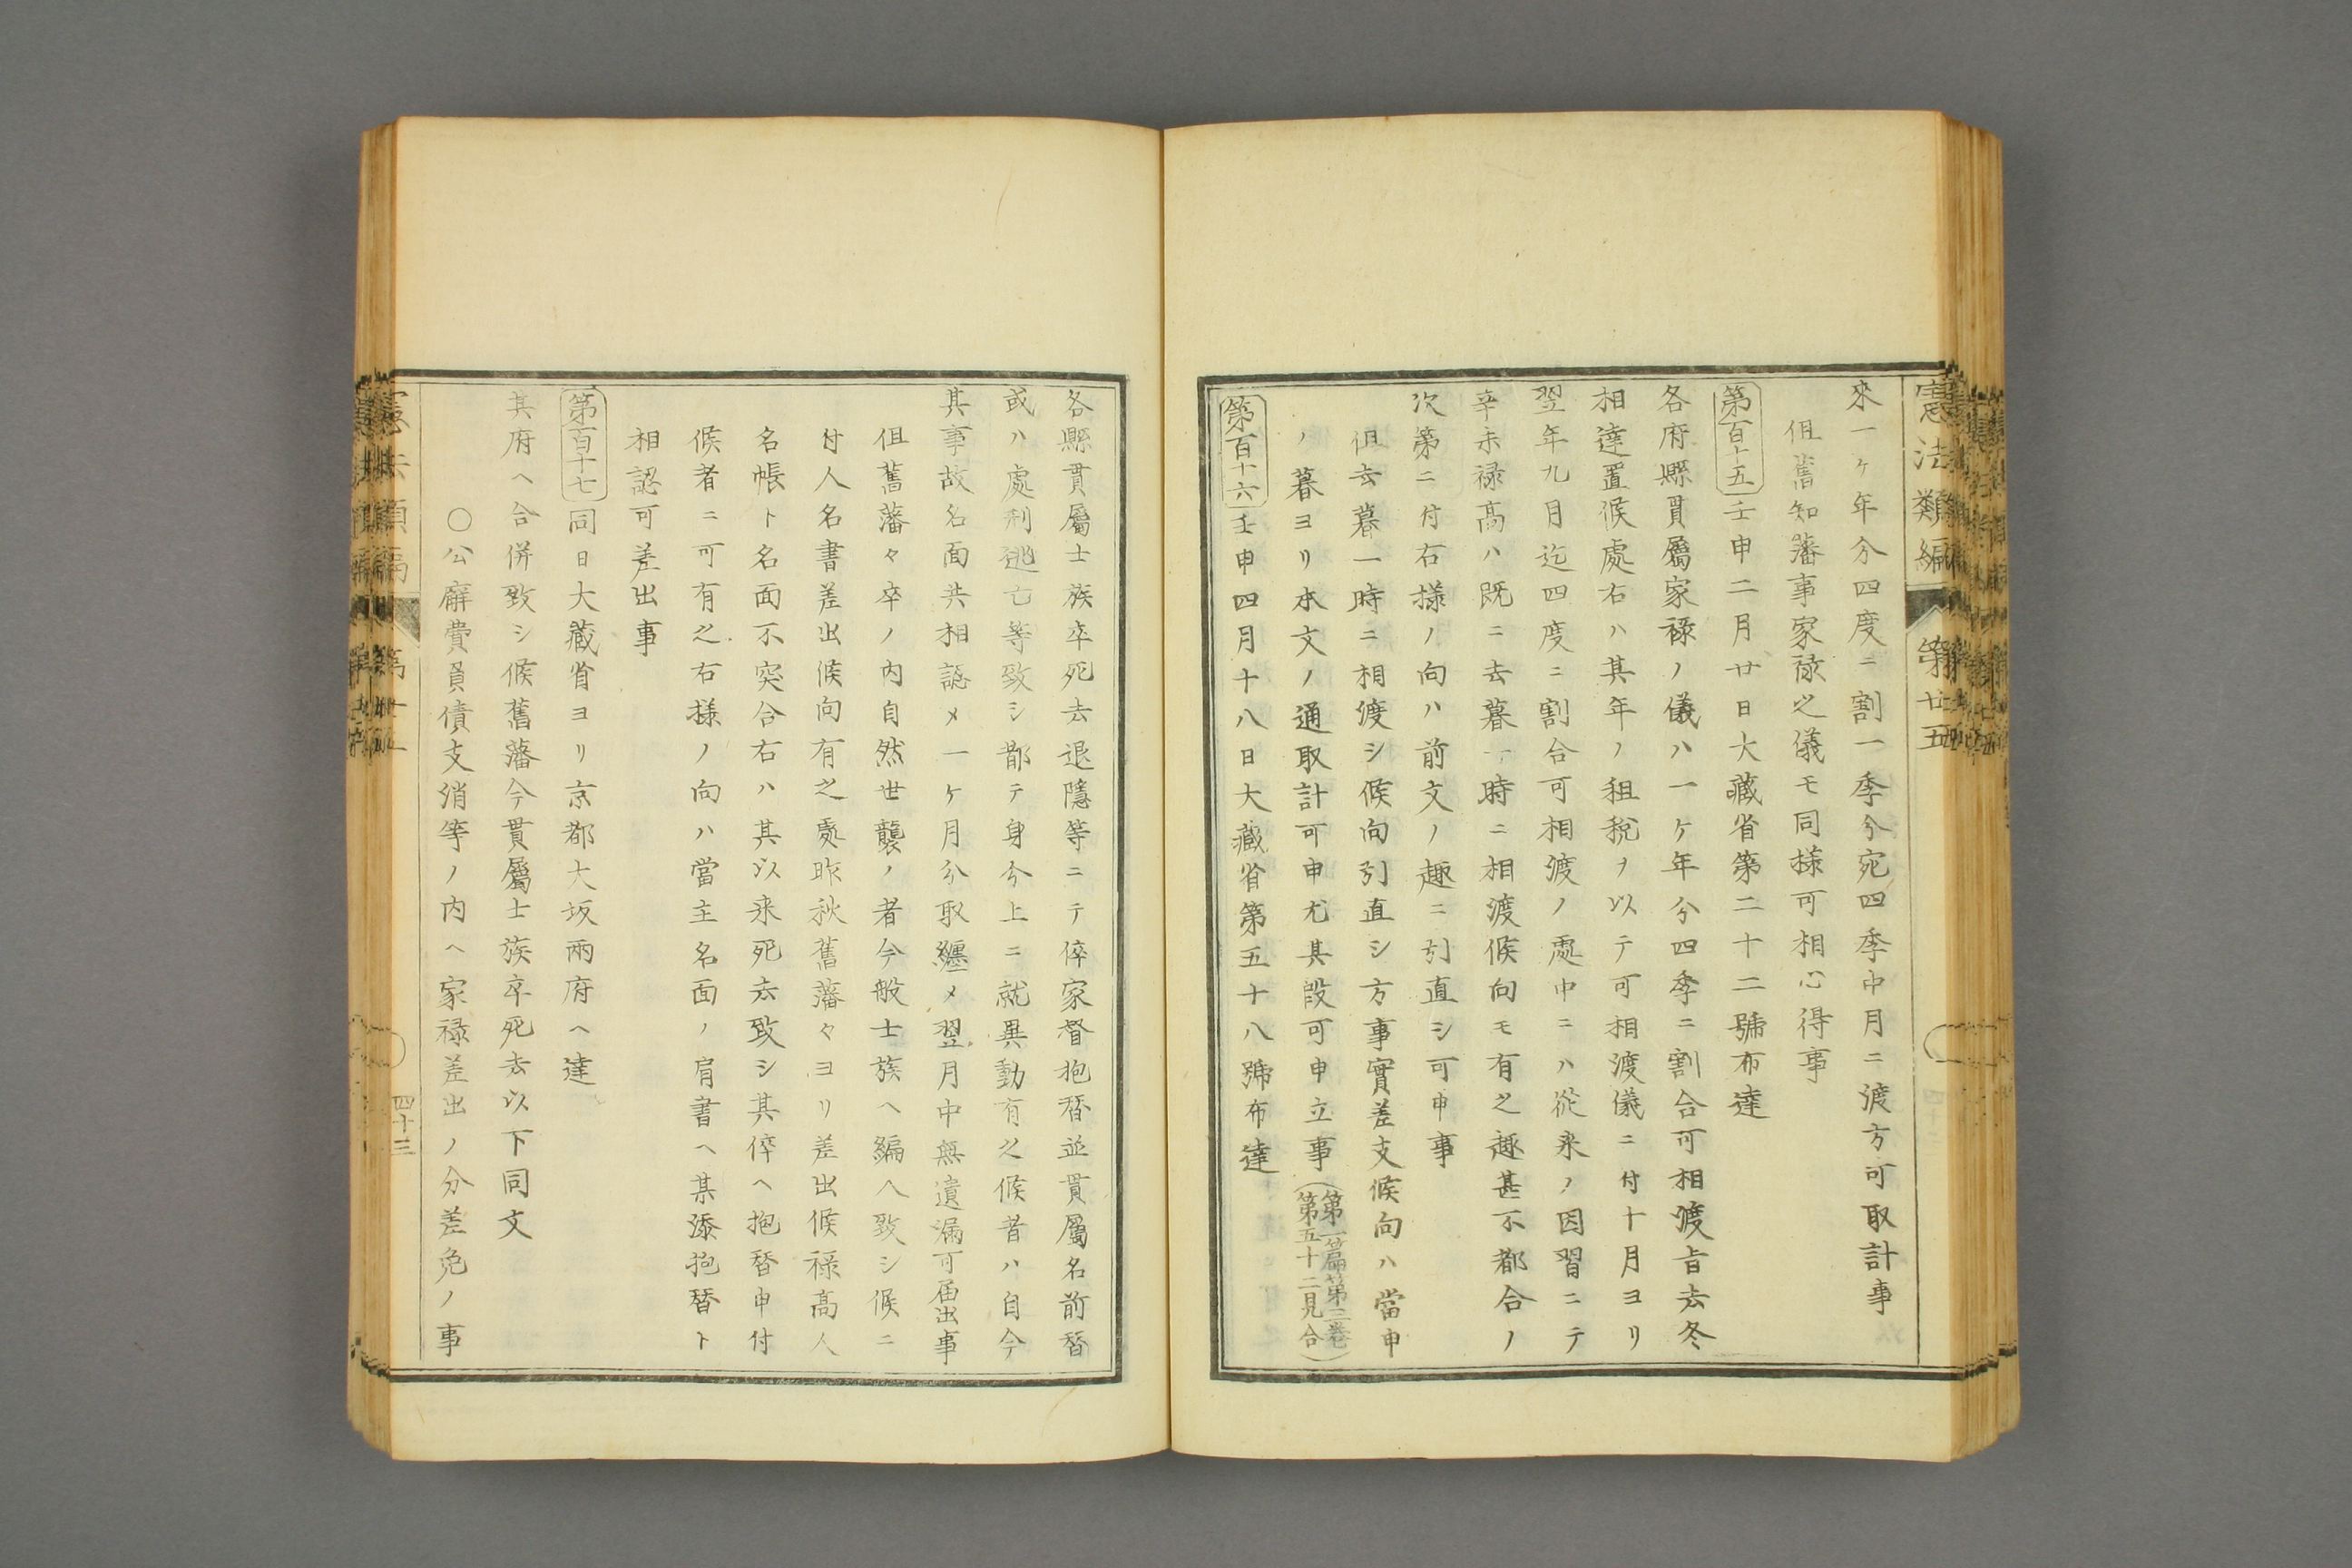 憲法類編 第廿五
來一ヶ年分四度ニ割一季分宛四季中月ニ渡方可取計事
但舊知藩事家祿之儀モ同様可相心得事
第百十五 壬申二月廿日大藏省第二十二號布達
各府縣貫屬家祿ノ儀ハ一ヶ年分四季ニ割合可相渡旨去冬
相達置候處右ハ其年ノ租税ヲ以テ可相渡儀ニ付十月ヨリ
翌年九月迄四度ニ割合可相渡ノ處中ニハ從来ノ因習ニテ
辛未禄高ハ既ニ去暮一時ニ相渡候向モ有之趣甚不都合ノ
次第ニ付右様ノ向ハ前文ノ趣ニ引直シ可申事
但去暮一時ニ相渡シ候向引直シ方事實差支候向ハ當申
ノ暮ヨリ本文ノ通取計可申尤其段可申立事(第一篇第三巻
第五十二見合)
第百十六 壬申四月十八日大藏省第五十八號布達
各縣貫屬士族卒死去退隱等ニテ倅家督抱替並貫屬名前替
或ハ處刑逃亡等致シ都テ身分上ニ就異動有之候者ハ自今
其事故名面共相認メ一ヶ月分取纏メ翌月中無遺漏可届出事
但舊藩々卒ノ内自然世襲ノ者今般士族ヘ編入致シ候ニ
付人名書差出候向有之處昨秋舊藩々ヨリ差出候禄高人
名帳ト名面不突合右ハ其以来死去致シ其倅ヘ抱替申付
候者ニ可有之右様ノ向ハ當主名面ノ肩書ヘ某添抱替ト
相認可差出事
第百十七 同日大藏省ヨリ京都大坂兩府ヘ達
其府ヘ合併致シ候舊藩今貫屬士族卒死去以下同文
〇公廨費負債支消等ノ内ヘ家禄差出ノ分差免ノ事
四十三